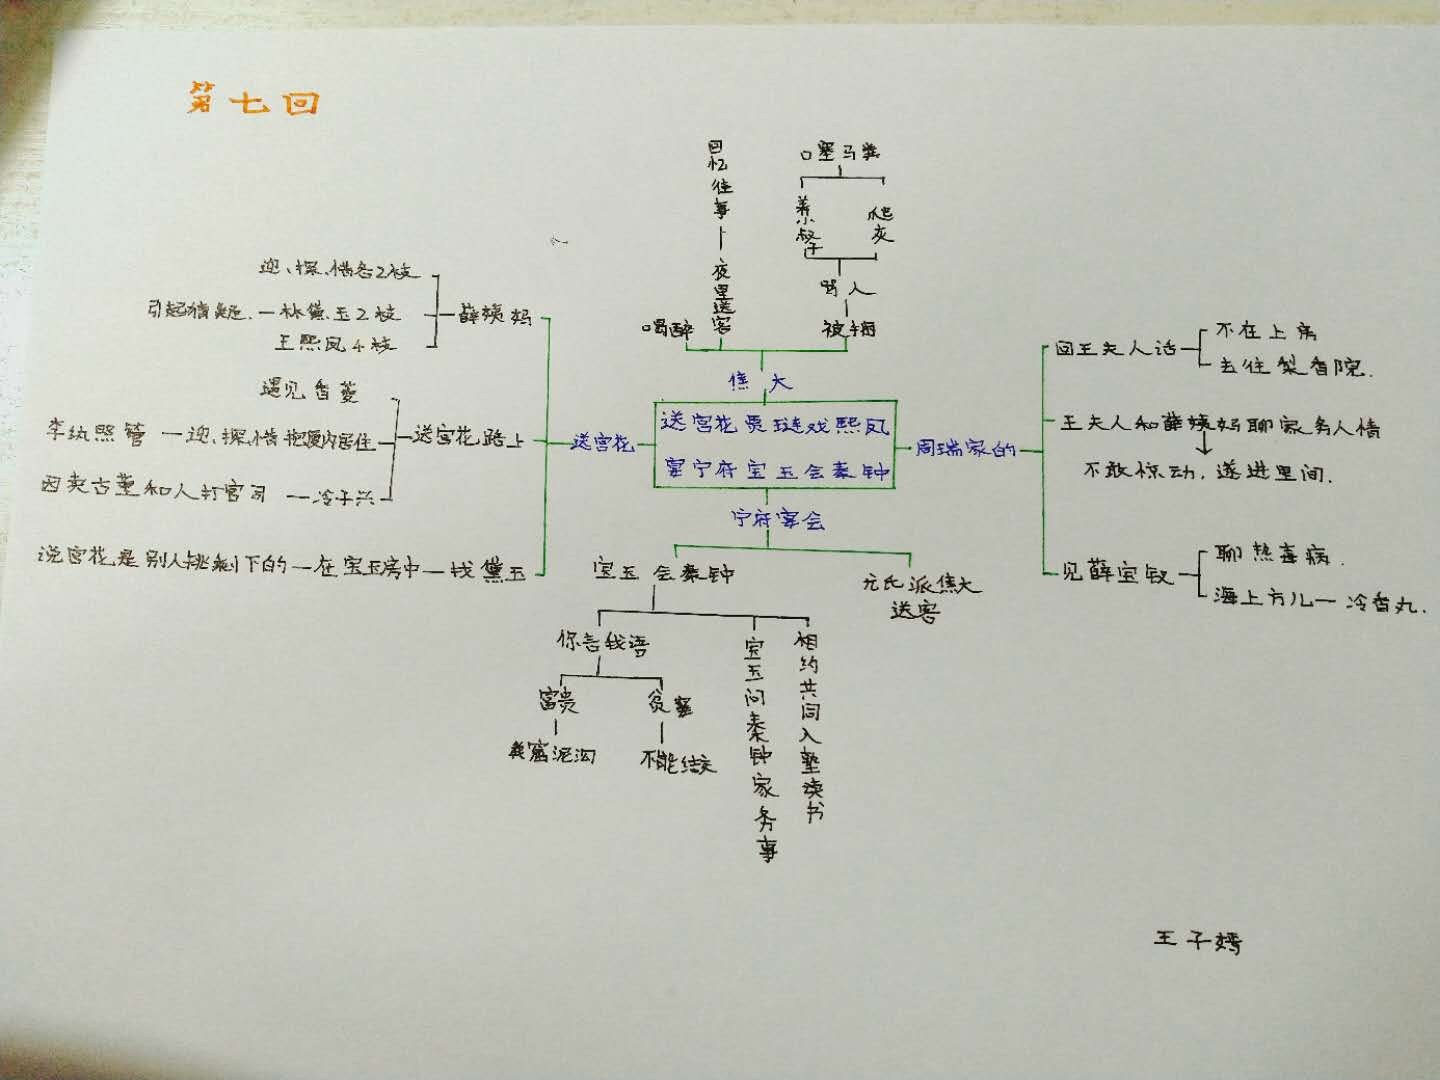 第七回
回忆往事
夜里送客
口塞马粪
养小叔子
爬灰
骂人
喝醉
被捆
焦大
迎、探、惜各2枝
引起猜疑
林黛玉2枝
王熙凤4枝
薛姨妈
遇见香菱
李纨照管
迎、探、惜抱厦内居住
送宫花路上
因卖古董和人打官司
冷子兴
说宫花是别人挑剩下的
在宝玉房中
找黛玉
送宫花
送宫花贾琏戏熙凤
宴宁府宝玉会秦钟
周瑞家的
回王夫人话
不在上房
去往梨香院.
王夫人和薛姨妈聊家务人情
不敢惊动,遂进里间.
见薛宝钗
聊热毒病.
海上方儿
冷香丸.
宁府宴会
宝玉会秦钟
尤氏派焦大
送客
你言我语
富贵
贫窭
粪窟泥沟
不能结交
宝玉问秦钟家务事
相约共同入塾读书
王子嫣